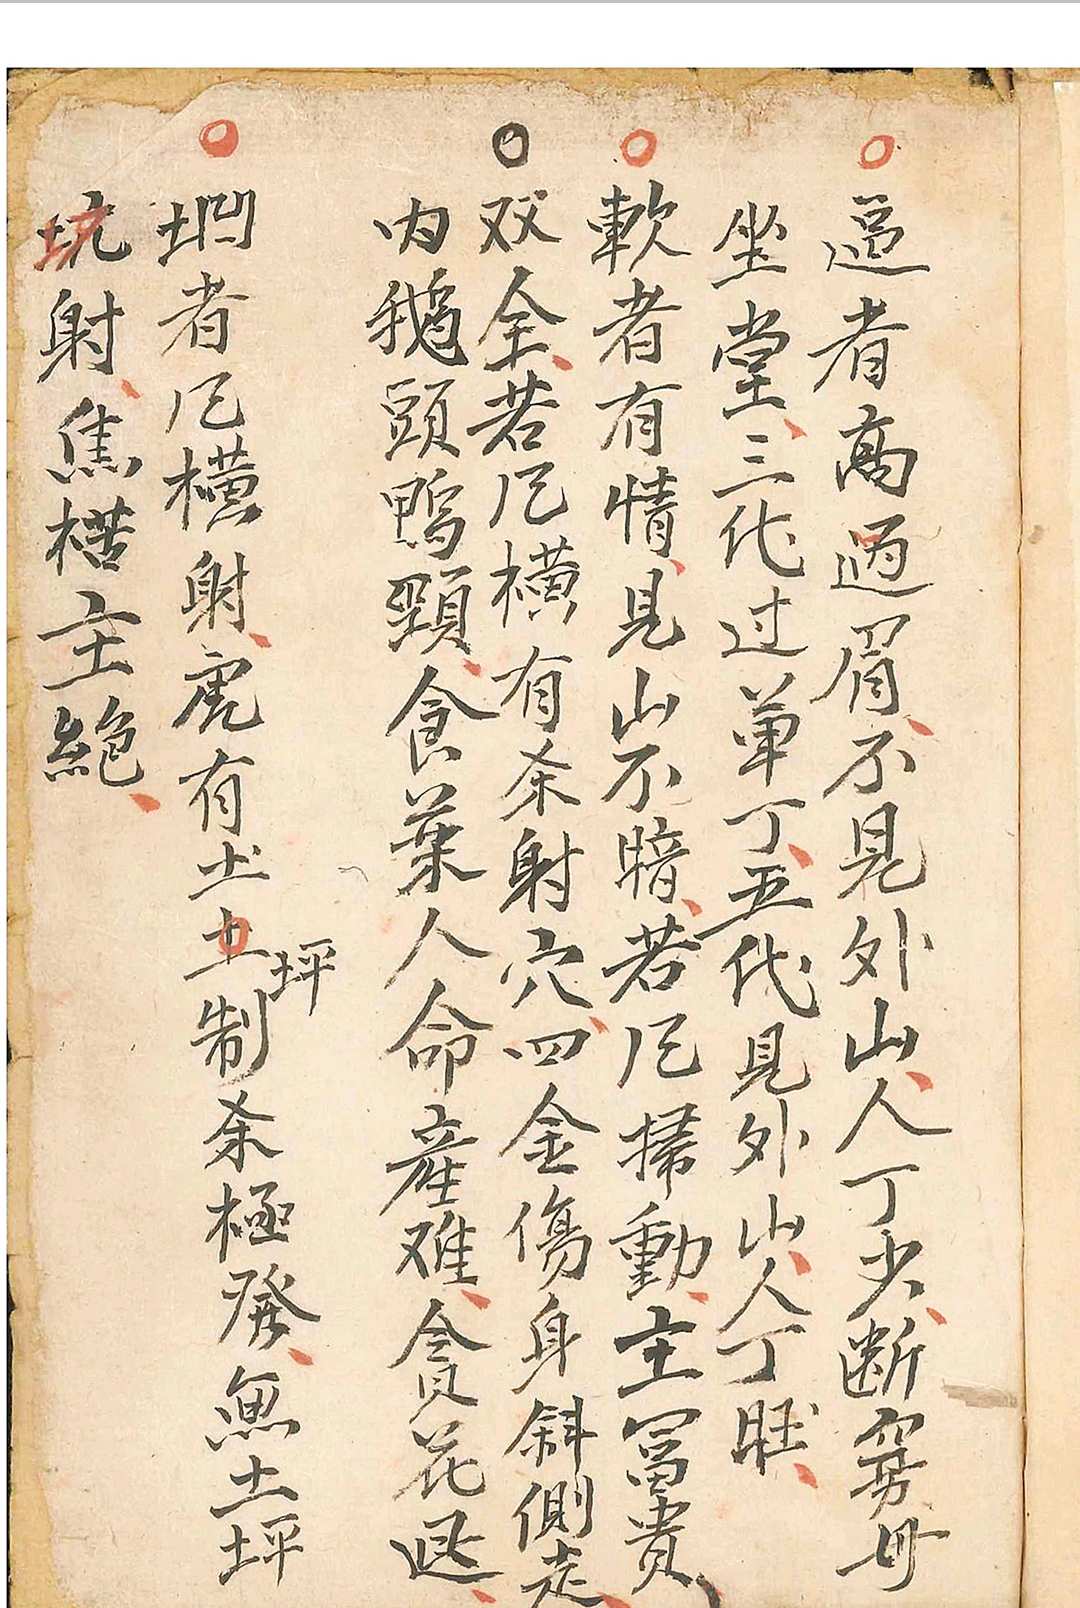 逼者高過眉不見外山人丁少断穷毋
坐堂三代过单丁五代見外山人丁旺
軟者有情見山不暗若凡掃動主冨貴
双全若凡横有杀射穴四金傷身斜側走
内鵝頭鴨頸食葉人命産难貪花退
坪
㘭者凡横射虎有土土制杀極發無土坪
坑射焦楛主絶